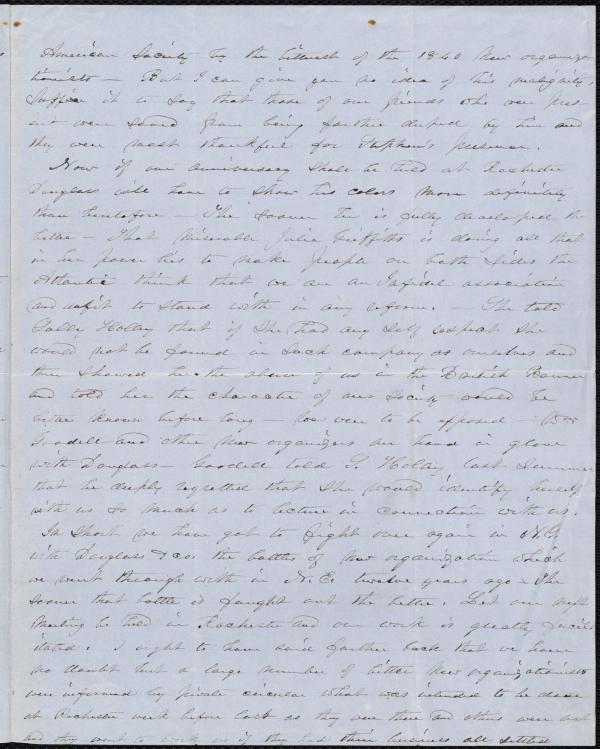 American Society by the bitterest of the 1840 New organiza-
tionists — But I can give you no idea of his malignity
Suffice it to say that those of our friends who were pres-
ent were saved from being farther duped by him and
they were most thankful for Stephen's presence.
Now if our anniversary shall be held at Rochester
Douglass will have to show his colors more definitely
than heretofore — The sooner he is fully developed the
better — That miserable Julia Griffiths is doing all that
in her power lies to make people on both sides the
Atlantic think that we are an Infidel association
and unfit to stand with in any reform. — She told
Sally Holley that if she had any self respect she
would not be found in such company as ourselves and
then showed her the abuse of us in the British Banner
and told her the character of our Society would be
better known before long — we were to be exposed —
Goodell and other New organizers are hand in glove
with Douglass — Goodell told S. Holley last Summer
that he deeply regretted that she would identify herself
with us so much as to lecture in connection with us.
In short we have got to fight over again in N.Y.
with Douglass & co. the battles of New organization which
we went through with in N. E. twelve years ago — The
sooner that battle is fought out the better. Let our next
meeting be held in Rochester and our work is greatly facil-
itated. I ought to have said farther back that we have
no doubt but a large number of bitter New organizationists
were informed by private circular what was intended to be done
at Rochester week before last as they were there and others were not
and they went to work as if they had their business all settled